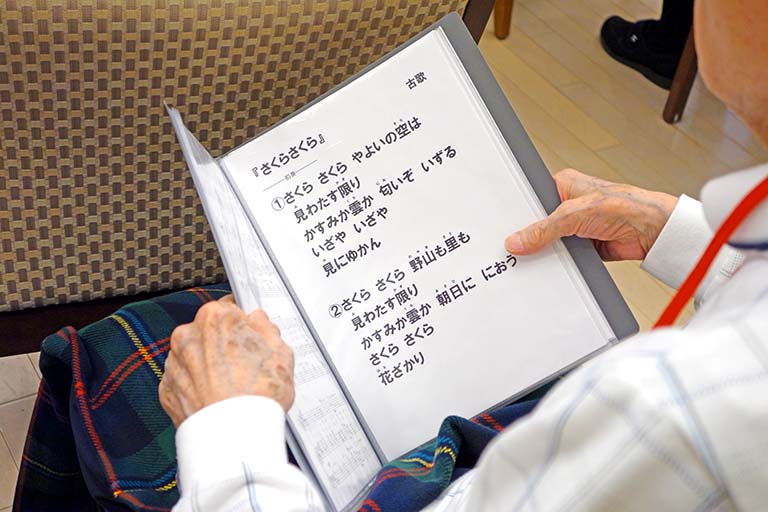 古歌
『さくらさくら』
①さくら さくら やよいの空は
見わたす限り
かすみか雲か 匂いぞ いずる
いざや いざや
見にゆかん
②さくら さくら 野山も里も
見わたす限り
かすみか雲か 朝日に におう
さくら さくら
花ざかり